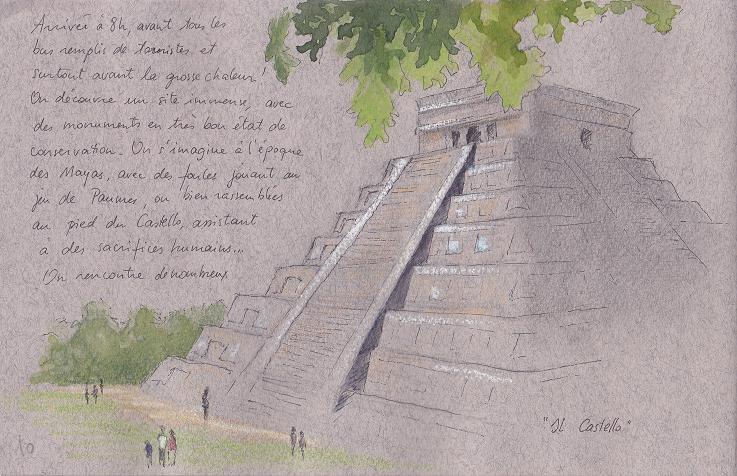 Arrivée à 8h, avant tous les
bus remplis de touristes et
surtout avant la grosse chaleur!
On découvre un site immense, avec
des monuments en très bon état de
conservation. On s'imagine à l'époque
des Mayas, avec des foules jouant au
jeu de Paumes, ou bien rassemblées
au pied du Castello, assistant
à des sacrifices humains...
On rencontre de nombreux
"Il Castello"
10